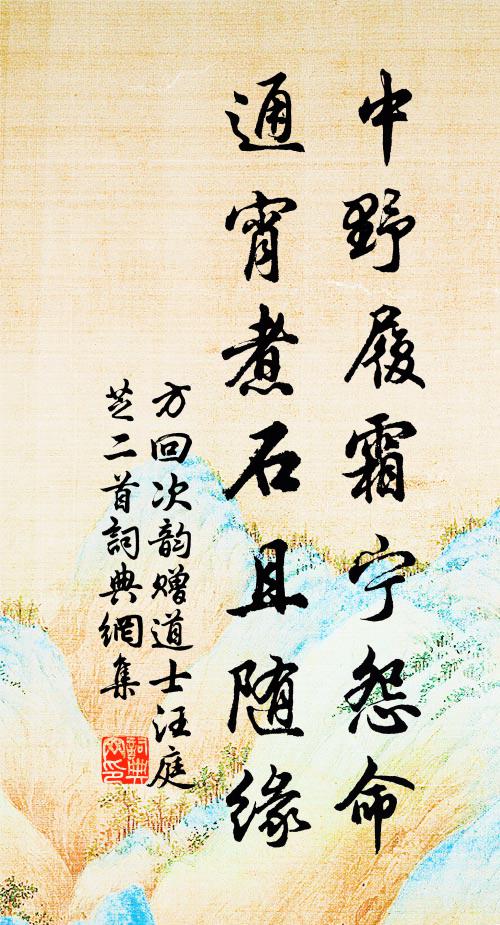 中野履霜宁怨命
通宵煮石且随缘
方回次韵赠道士汪庭
芝二首詞典網集
詞典
网印